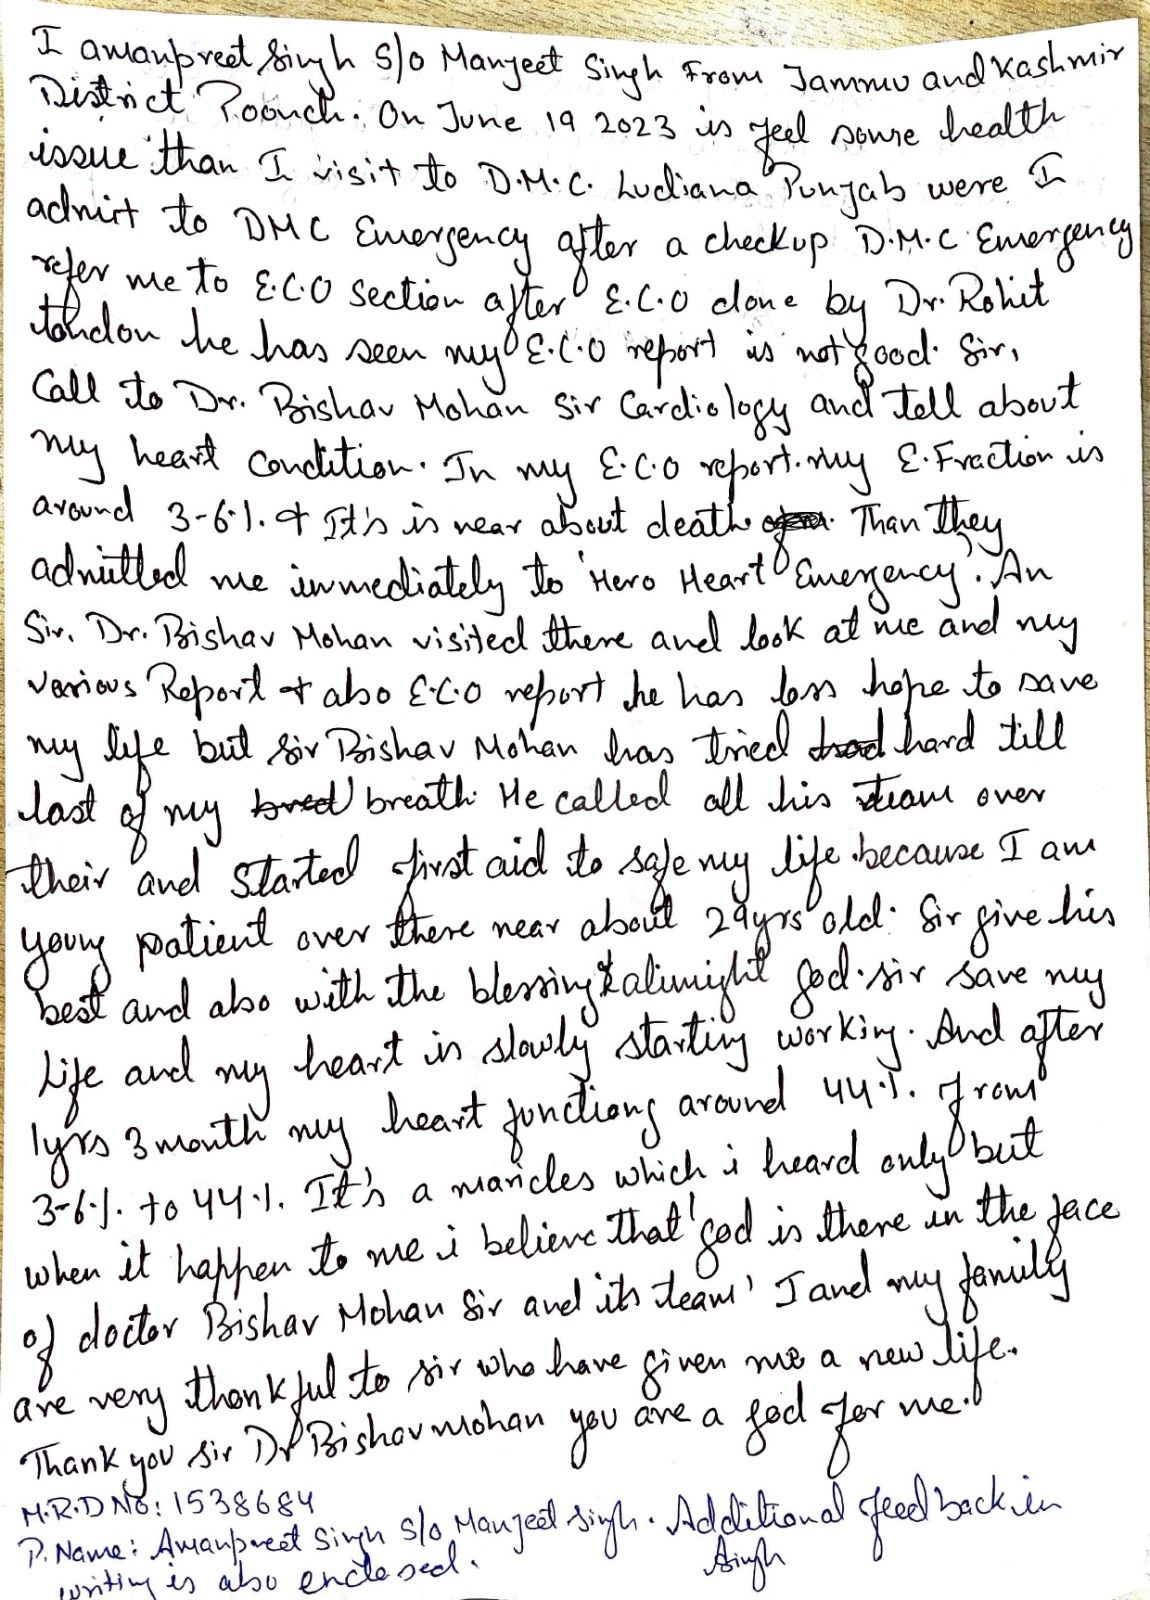 I amanpreet Singh S/o Manjeet Singh From Jammu and Kashmir
District Poonch. On June 19 2023 is feel some health
issue than I visit to D.M.C. Ludiana Punjab were I
admit to DMC Emergency after a checkup D.M.C Emergency
refer me to E.C.O section after E.C.O done by Dr. Rohit
tondon he has seen my E.C.O report is not good. Sir,
Call to Dr. Bishav Mohan Sir Cardiology and tell about
my heart condition. In my E.C.O report. my E.Fraction is
around 3-6%. & It's is near about death. Than they
admitted me immediately to 'Hero Heart Emergency'. An
Sir, Dr. Bishav Mohan visited there and look at me and my
various Report & also E.C.O report he has loss hope to save
my life but Sir Bishav Mohan has tried hard till
last of my breath. He called all his team over
their and started first aid to safe my life because I am
young patient over there near about 29yrs old. Sir give his
best and also with the blessing & alimight god. sir save my
life and my heart is slowly starting working. And after
1yrs 3 month my heart functions around 44%. from
3-6%. to 44%. It's a maricles which i heard only but
when it happen to me i believe that 'god is there in the face
of doctor Bishav Mohan Sir and its team' I and my family
are very thankful to sir who have given me a new life.
Thank you sir Dr Bishav mohan you are a god for me.
M.R.D No: 1538684
P. Name: Amanpreet Singh S/o Manjeet Singh. Additional feed back in
writing is also enclosed. Singh